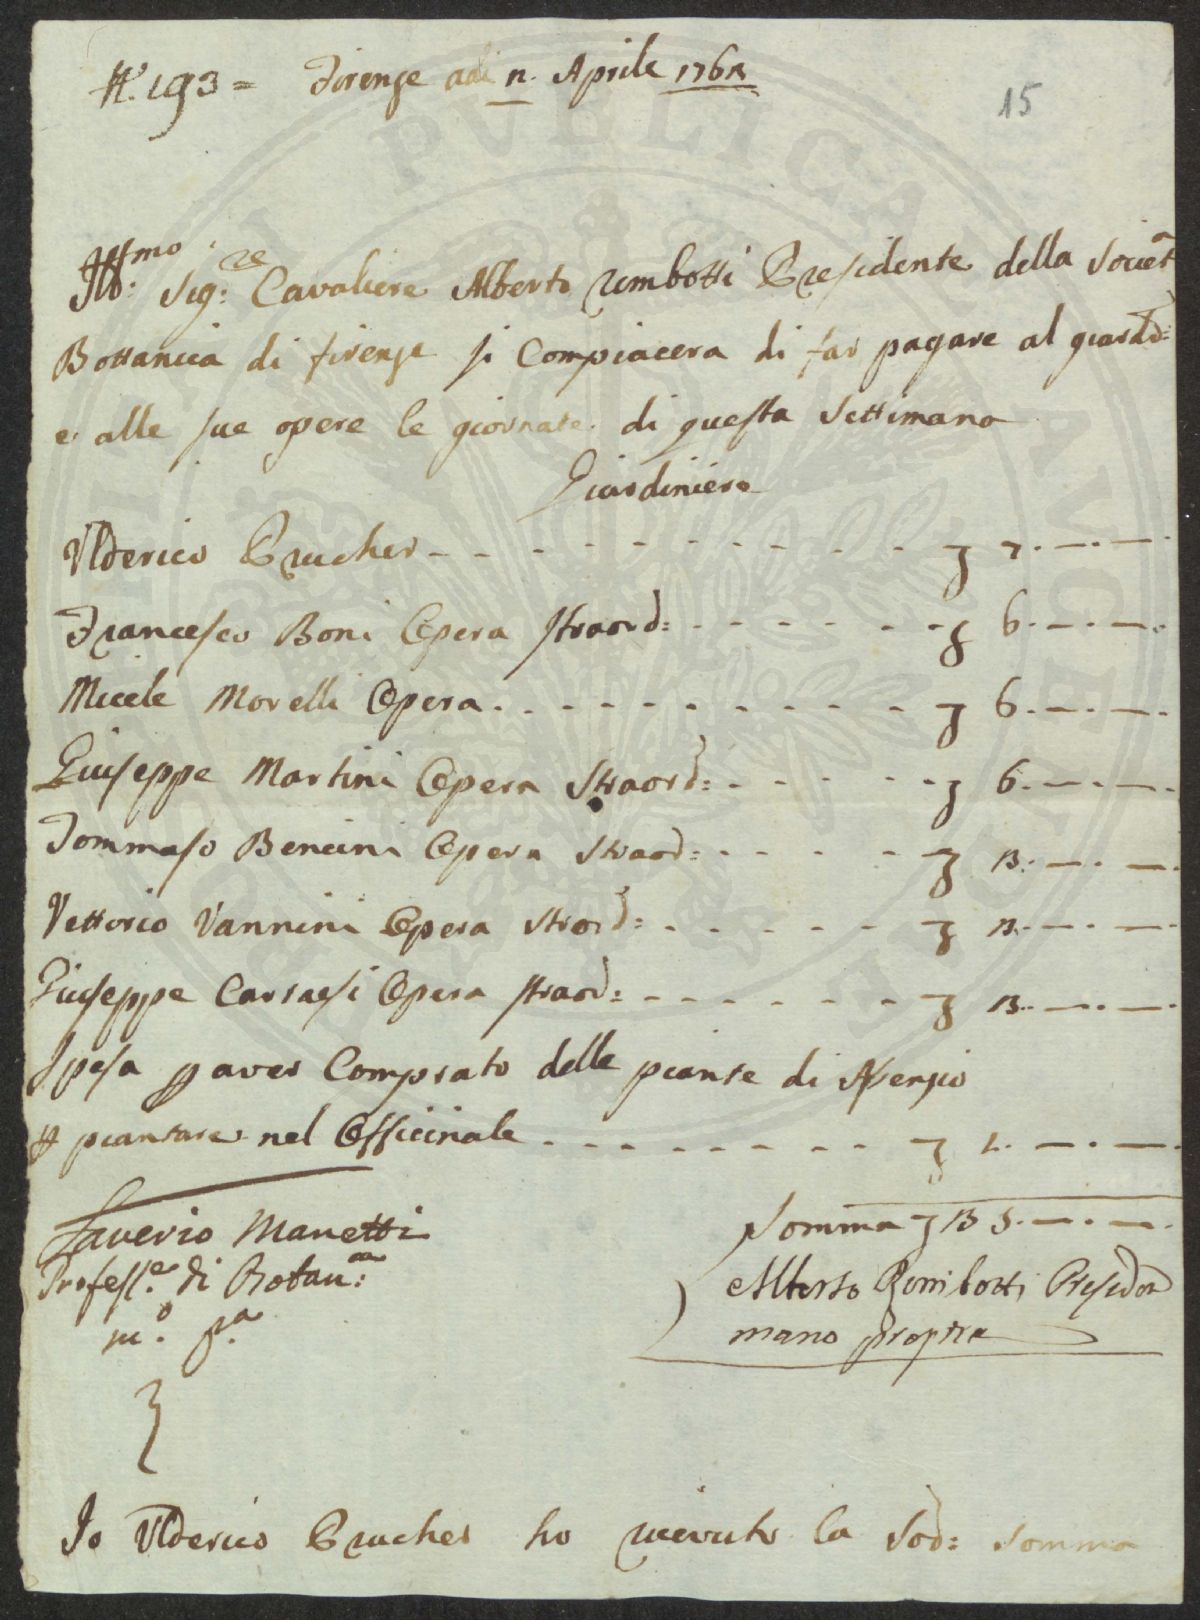 N.º 193 = Firenze adi n. Aprile 176
15
Ill:mo Sig:re Cavaliere Alberto Rimbotti Presidente della Societa
Bottanica di firenze si Compiacera di far pagare al giardi:
e alle sue opere le giornate di questa Settimana
Giardiniere
Ulderico Prucher - - - - - - - - - - ʒ 7. — . —
Francesco Boni Opera straord: - - - - - - ʒ 6. — . —
Micele Morelli Opera - - - - - - - - - ʒ 6. — . —
Giuseppe Martini Opera Straord: - - - - - ʒ 6. — . —
Tommaso Bencini Opera Straod: - - - - ʒ — . —
Vettorio Vannini Opera Strord: - - - - - ʒ — . —
Giuseppe Opera straod: - - - - - - ʒ — . —
Spesa p aver Comprato delle piante di
p piantare nel Officinale - - - - - - - - ʒ — . —
Saverio Manetti
Professe. di Botan:ca
m:o p:a
Somma ʒ — . —
Alberto Rimbotti Presiden
mano propria
Io Ulderico Prucher ho ricevuto la Sod: Somma
PVBLICAE